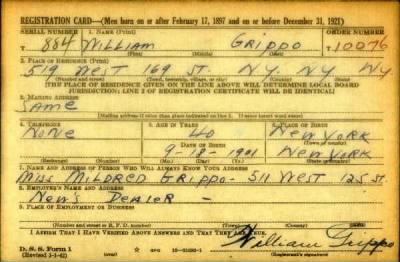 REGISTRATION CARD—(Men born on or after February 17, 1897 and on or before December 31, 1921)
SERIAL NUMBER 1. NAME (Print) ORDER NUMBER
T 884 WILLIAM GRIPPO T 10076
(First) (Middle) (Last)
2. PLACE OF RESIDENCE (Print)
519 WEST 169 ST NY NY NY
(Number and street) (Town, township, village, or city) (County) (State)
[THE PLACE OF RESIDENCE GIVEN ON THE LINE ABOVE WILL DETERMINE LOCAL BOARD
JURISDICTION; LINE 2 OF REGISTRATION CERTIFICATE WILL BE IDENTICAL]
3. MAILING ADDRESS
SAME
[Mailing address if other than place indicated on line 2. If same insert word same]
4. TELEPHONE 5. AGE IN YEARS 6. PLACE OF BIRTH
NONE 40 NEW YORK
DATE OF BIRTH (Town or county)
9-18-1901 NEW YORK
(Exchange) (Number) (Mo.) (Day) (Yr.) (State or country)
7. NAME AND ADDRESS OF PERSON WHO WILL ALWAYS KNOW YOUR ADDRESS
MISS MILDRED GRIPPO - 511 WEST 125 ST.
8. EMPLOYER'S NAME AND ADDRESS
NEWS DEALER -
9. PLACE OF EMPLOYMENT OR BUSINESS
(Number and street or R. F. D. number) (Town) (County) (State)
I AFFIRM THAT I HAVE VERIFIED ABOVE ANSWERS AND THAT THEY ARE TRUE.
D. S. S. Form 1 William Grippo
(Revised 1-1-42) (Registrant's signature)